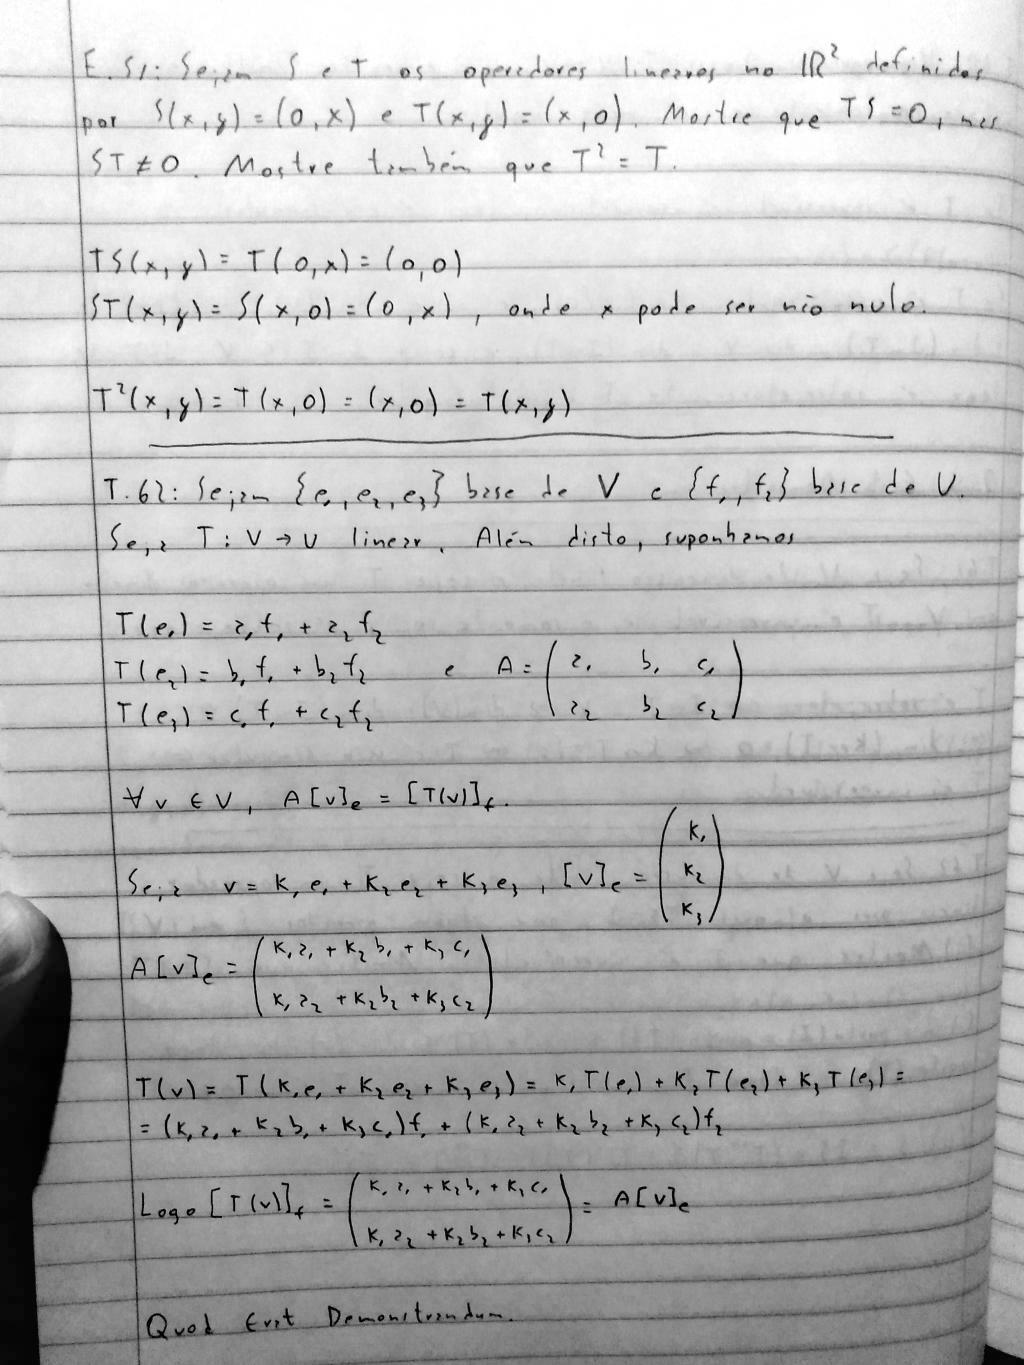 E. 51: Sejam S e T os operadores lineares no ℝ² definidos
por S(x,y) = (0,x) e T(x,y) = (x,0). Mostre que TS = 0, mas
ST ≠ 0. Mostre também que T² = T.
TS(x,y) = T(0,x) = (0,0)
ST(x,y) = S(x,0) = (0,x), onde x pode ser não nulo.
T²(x,y) = T(x,0) = (x,0) = T(x,y)
T. 62: Sejam {e₁, e₂, e₃} base de V e {f₁, f₂} base de U.
Seja T: V → U linear. Além disto, suponhamos
T(e₁) = a₁f₁ + a₂f₂
T(e₂) = b₁f₁ + b₂f₂ e A = ( a₁ b₁ c₁
T(e₃) = c₁f₁ + c₂f₂ a₂ b₂ c₂ )
∀ v ∈ V, A[v]ₑ = [T(v)]_f.
Seja v = K₁e₁ + K₂e₂ + K₃e₃, [v]ₑ = ( K₁
K₂
K₃ )
A[v]ₑ = ( K₁a₁ + K₂b₁ + K₃c₁
K₁a₂ + K₂b₂ + K₃c₂ )
T(v) = T(K₁e₁ + K₂e₂ + K₃e₃) = K₁T(e₁) + K₂T(e₂) + K₃T(e₃) =
= (K₁a₁ + K₂b₁ + K₃c₁)f₁ + (K₁a₂ + K₂b₂ + K₃c₂)f₂
Logo [T(v)]_f = ( K₁a₁ + K₂b₁ + K₃c₁
K₁a₂ + K₂b₂ + K₃c₂ ) = A[v]ₑ
Quod Erat Demonstrandum.